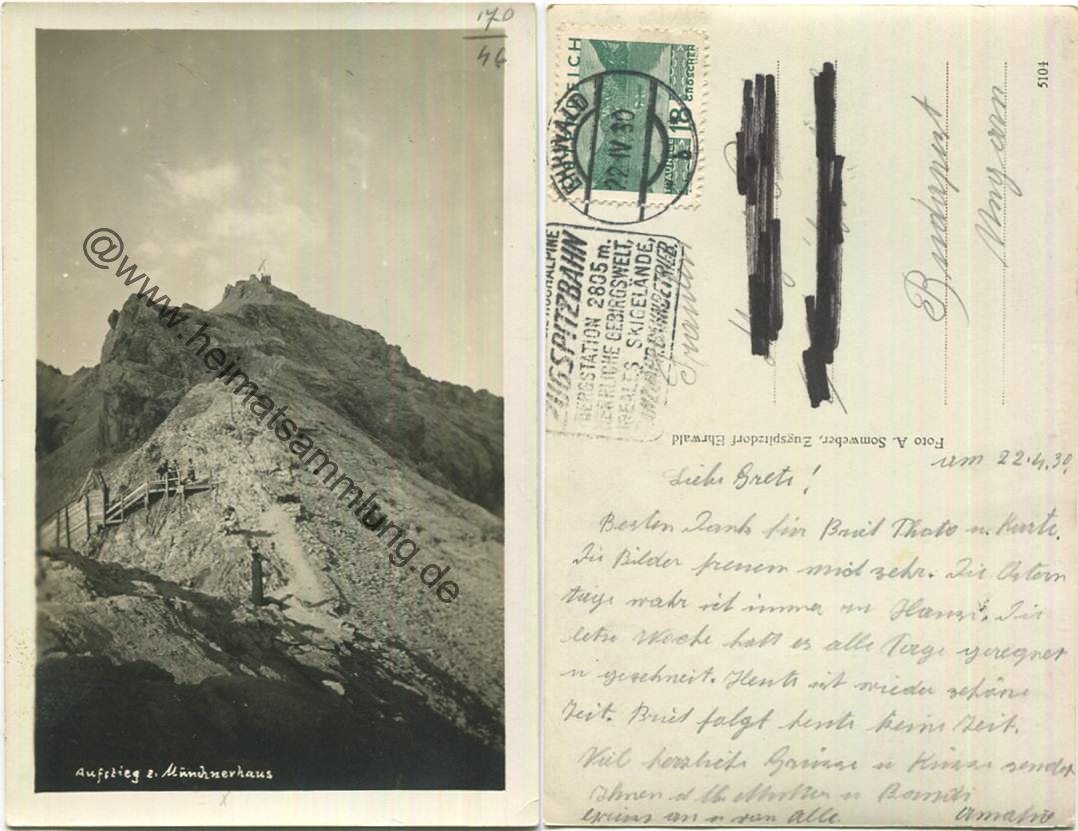 170
46
Aufstieg z. Münchnerhaus
@www.heimatsammlung.de
REICH
18 GROSCHEN
TRAUNSEE
EHRWALD
22 IV 30
b
HOCHALPINE
ZUGSPITZBAHN
BERGSTATION 2805 m.
HERRLICHE GEBIRGSWELT,
IDEALES SKIGELÄNDE,
GANZJAHRBAHNBETRIEB.
Budapest
Ungarn
5104
Foto A. Somweber, Zugspitzdorf Ehrwald
am 22.4.30.
Liebe Greti!
Besten Dank für Brief Photo u. Karte.
Die Bilder freuen mich sehr. Die Ostern
tage wahr ich immer in Hause. Die
letze Woche hatt es alle Tage geregnet
u geschneit. Heute ist wieder schöne
Zeit. Brief folgt heute keine Zeit.
Viel herzliche Grüsse u Küsse sendet
Ihnen d lb Mutter u Bandi
Gruss an u von alle.